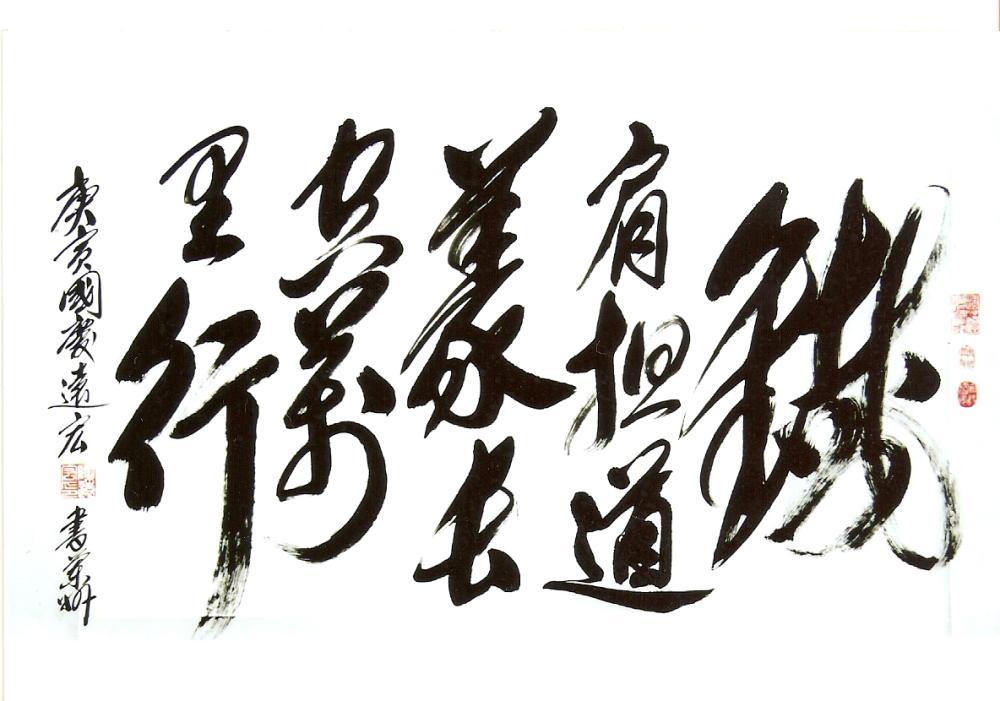 鐵
肩担道
義长
安萬
里行
庚寅國慶遠宏書蘭州